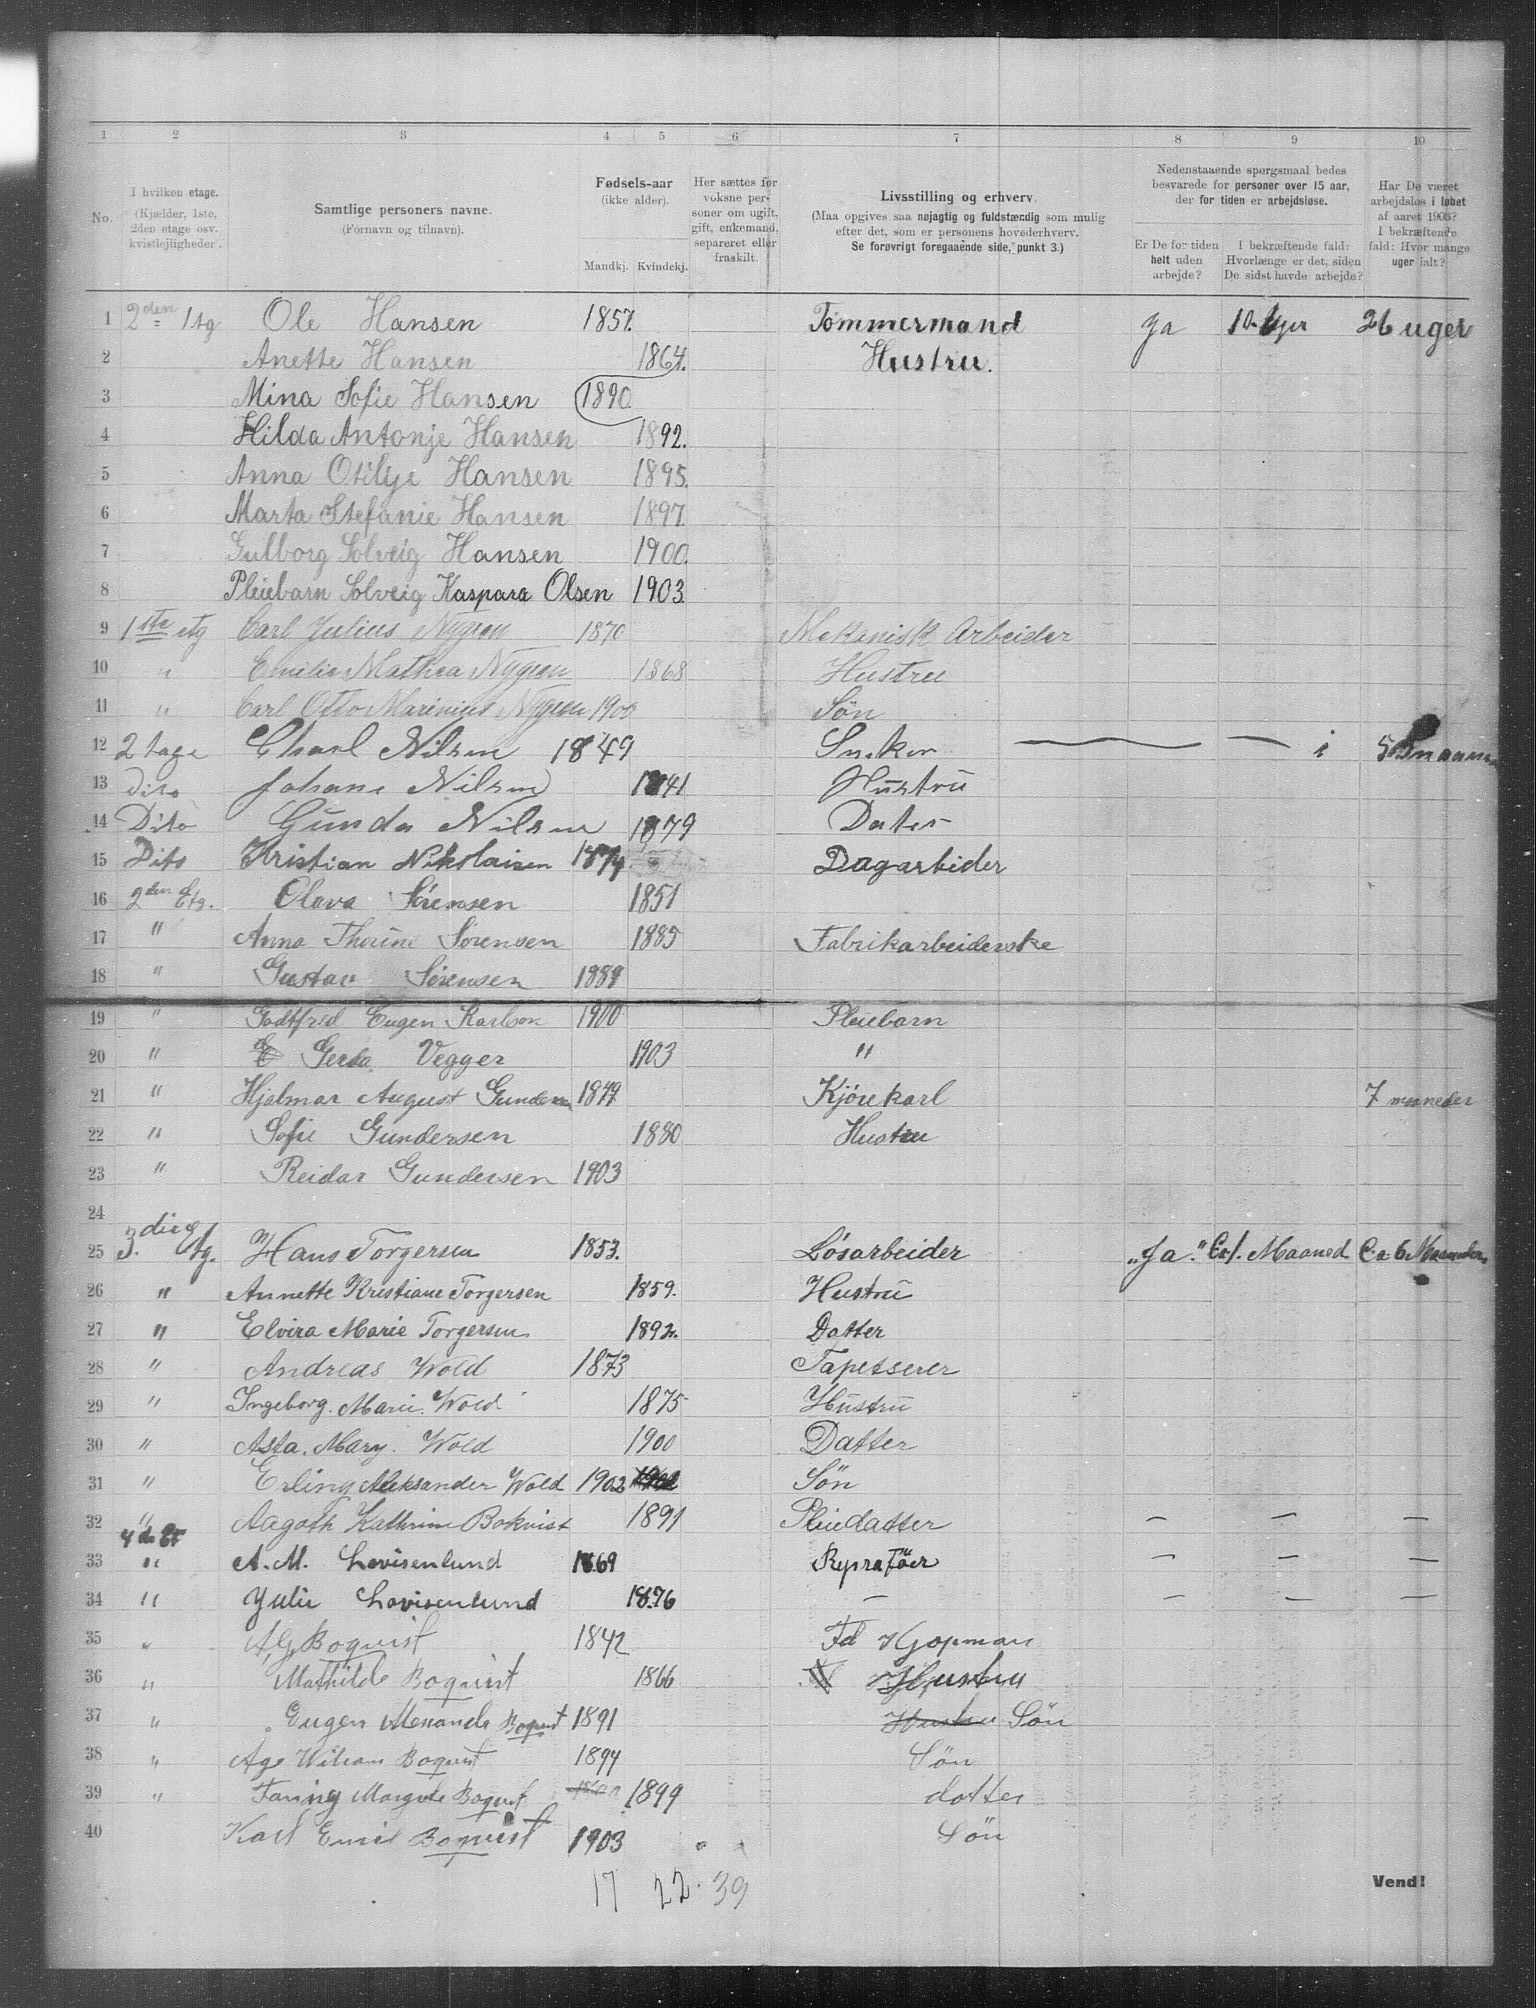 1 2 3 4 5 6 7 8 9 10
No.
I hvilken etage.
(Kjælder, 1ste,
2den etage osv.
kvistlejligheder.
Samtlige personers navne.
(Fornavn og tilnavn).
Fødsels-aar
(ikke alder).
Mandkj. Kvindekj.
Her sættes for
voksne per-
soner om ugift,
gift, enkemand,
separeret eller
fraskilt.
Livsstilling og erhverv.
(Maa opgives saa nøjagtig og fuldstændig som mulig
efter det, som er personens hovederhverv.
Se forøvrigt foregaaende side, punkt 3.)
Nedenstaaende spørgsmaal bedes
besvarede for personer over 15 aar,
der for tiden er arbejdsløse.
Er De for tiden
helt uden
arbejde?
I bekræftende fald:
Hvorlænge er det, siden
De sidst havde arbejde?
Har De været
arbejdsløs i løbet
af aaret 1903?
I bekræftende
fald: Hvor mange
uger ialt?
1 2den Etg Ole Hansen 1857. Tømmermand Ja 10 26 uger
2 Anette Hansen 1864. Hustru.
3 Mina Sofie Hansen 1890.
4 Hilda Antonje Hansen 1892.
5 Anna Otilije Hansen 1895.
6 Marta Stefanie Hansen 1897
7 Gulborg Solveig Hansen 1900.
8 Pleiebarn Solveig Kaspara Olsen 1903.
9 1ste etg Carl Julius Nygren 1870 Mekanisk Arbeider
10 " Emilie Mathea Nygren 1868 Hustru
11 " Carl Otto Marinius Nygren 1900 Søn
12 2 tage Charl Nilsen 1849 Snekor
13 Dito Johane Nilsen 1841 Hustru
14 Dito Gunda Nilsen 1879 Dater
15 Dito Kristian Nikolaisen 1874 Dagarbider
16 2den Etg. Olava Sørensen 1851
17 " Anna Thorine Sørensen 1885 Fabrikarbeiderske
18 " Gustav Sørensen 1889
19 " Godtfred Eugen Karlson 1900 Pleiebarn
20 " Gerda Vegger 1903 "
21 " Hjalmar August Gundersen 1877 Kjørekarl 7 maaneder
22 " Sofie Gundersen 1880 Hustru
23 " Reidar Gundersen 1903
24
25 3die Etg. Hans Torgersen 1853. Løsarbeider „Ja." Ca 1. Maaned Ca 6 Maaneder
26 " Annette Kristiane Torgersen 1859. Hustru
27 " Elvira Marie Torgersen 1892. Datter
28 " Andreas Wold 1873 Tapetserer
29 " Ingeborg. Marie. Wold 1875 Hustru
30 " Asta. Mary. Wold 1900 Datter
31 " Erling Aleksander Wold 1902 1902 Søn
32 " Aagoth Kathrine Bokvist 1891 Pleiedatter – – –
4de Et
33 " A. M. Lovisenlund 1869 – – –
34 " Yulie Lovisenlund 1876 – – – –
35 " A G Boquist 1842 Fd Kjøpman
36 " Mathilde Boquist 1866 Hustru
37 " Eugen Alexander Boquist 1891 Hustru Søn
38 " Age Wiliam Boquist 1894 Søn
39 " Fanny Margrete Boquist 1899 dotter
40 Karl Emil Boquist 1903 Søn
17 22. 39
Vend!